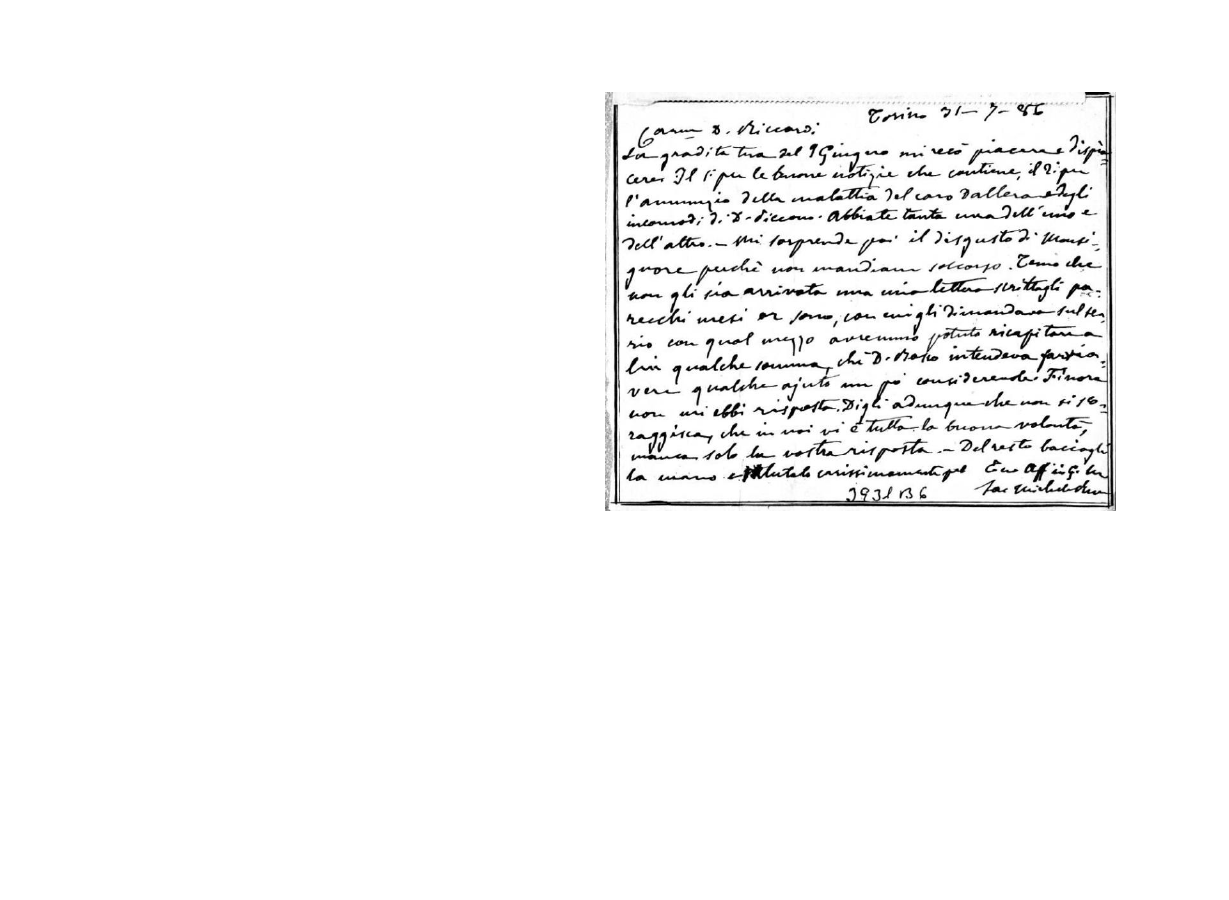 Torino 31-7-86
Carmo D. Riccardi
La gradita tua del 9 Giugno mi recò piacere e dispia=
cere. Il 1° per le buone notizie che contiene, il 2° per
l'annunzio della malattia del caro Dallera e degli
incomodi di D. Piccono. Abbiate tanta cura dell'uno e
dell'altro. - Mi sorprende poi il disgusto di Monsi=
gnore perchè non mandiam soccorso. Temo che
non gli sia arrivata una mia lettera scrittagli pa=
recchi mesi or sono, con cui gli dimandava sul se=
rio con qual mezzo avremmo potuto ricapitare a
lui qualche somma, chè D. Bosco intendeva fargli a=
vere qualche ajuto un pò considerevole. Finora
non mi ebbi risposta. Digli adunque che non si sco=
raggisca, che in noi vi è tutta la buona volontà,
manca solo la vostra risposta. - Del resto baciagli
la mano e salutalo carissimamente pel Tuo Aff in G. M.
Sac Michele Rua
393l B6